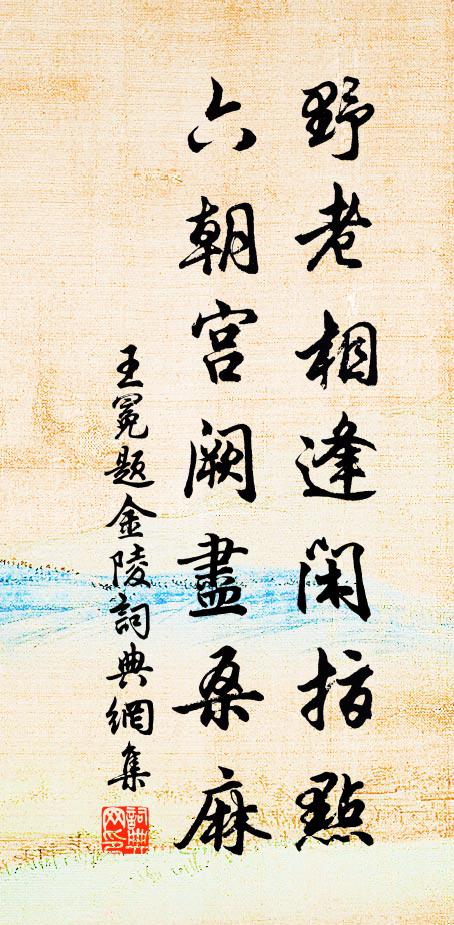 野老相逢闲指點
六朝宫阙盡桑麻
王冕题金陵詞典網集
詞典网印